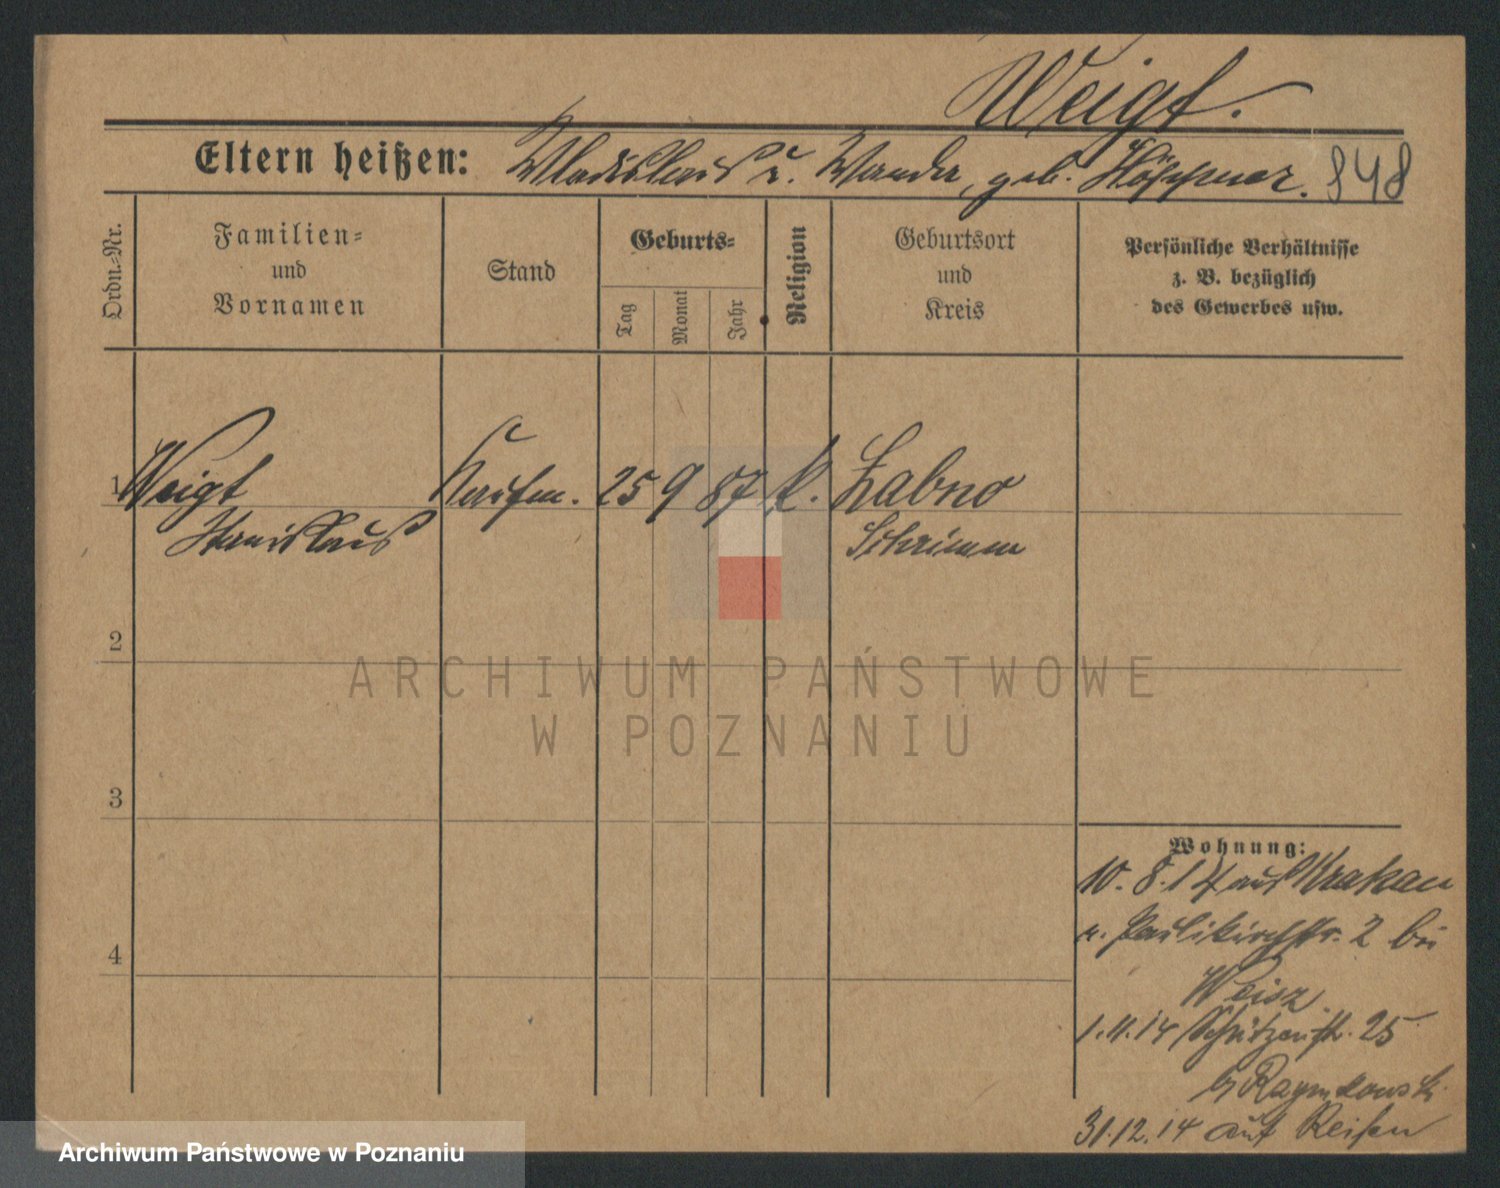 Weigt.
Eltern heißen: Wladislaus u. Wanda, geb. Höppner. 848
Ordn.-Nr.
Familien-
und
Vornamen
Stand
Geburts-
Tag
Monat
Jahr
Religion
Geburtsort
und
Kreis
Persönliche Verhältnisse
z. B. bezüglich
des Gewerbes usw.
1 Weigt Kaufm. 25 9 87 k. Zabno
Stanislaus Schrimm
2
3
4
ARCHIWUM PAŃSTWOWE
W POZNANIU
Wohnung:
10. 8. 14 aus Krakau
n. Paulikirchstr. 2 bei
Weisz
1.11.14 Schützenstr. 25
31.12.14 auf Reisen
Archiwum Państwowe w Poznaniu